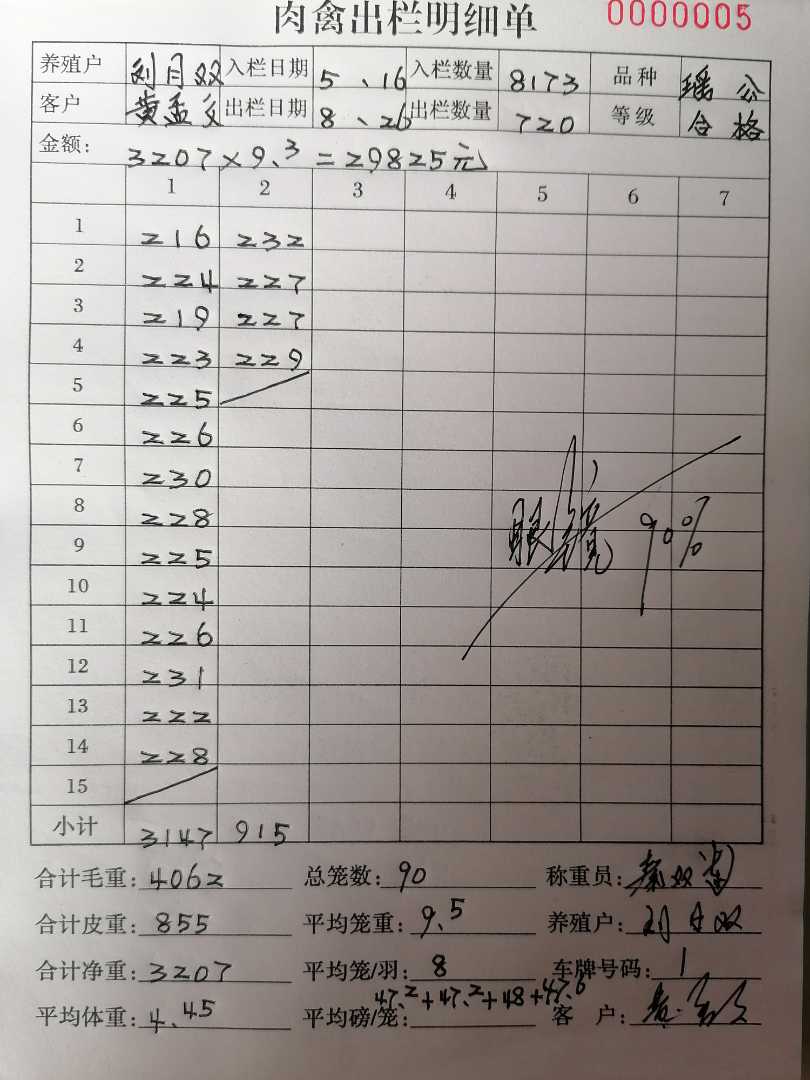 肉禽出栏明细单 0000005
养殖户 刘月双 入栏日期 5、16 入栏数量 8173 品种 瑶公
客户 黄孟 出栏日期 8、26 出栏数量 720 等级 合格
金额: 3207×9.3=29825元
1 2 3 4 5 6 7
1 216 232
2 224 227
3 219 227
4 223 229
5 225
6 226
7 230
8 228
9 225
10 224
11 226
12 231
13 222
14 228
15
眼镜 90%
小计 3147 915
合计毛重: 4062 总笼数: 90 称重员:
合计皮重: 855 平均笼重: 9.5 养殖户: 刘月双
合计净重: 3207 平均笼/羽: 8 车牌号码: 1
平均体重: 4.45 平均磅/笼: 47.2+47.2+48+47.6 客 户: